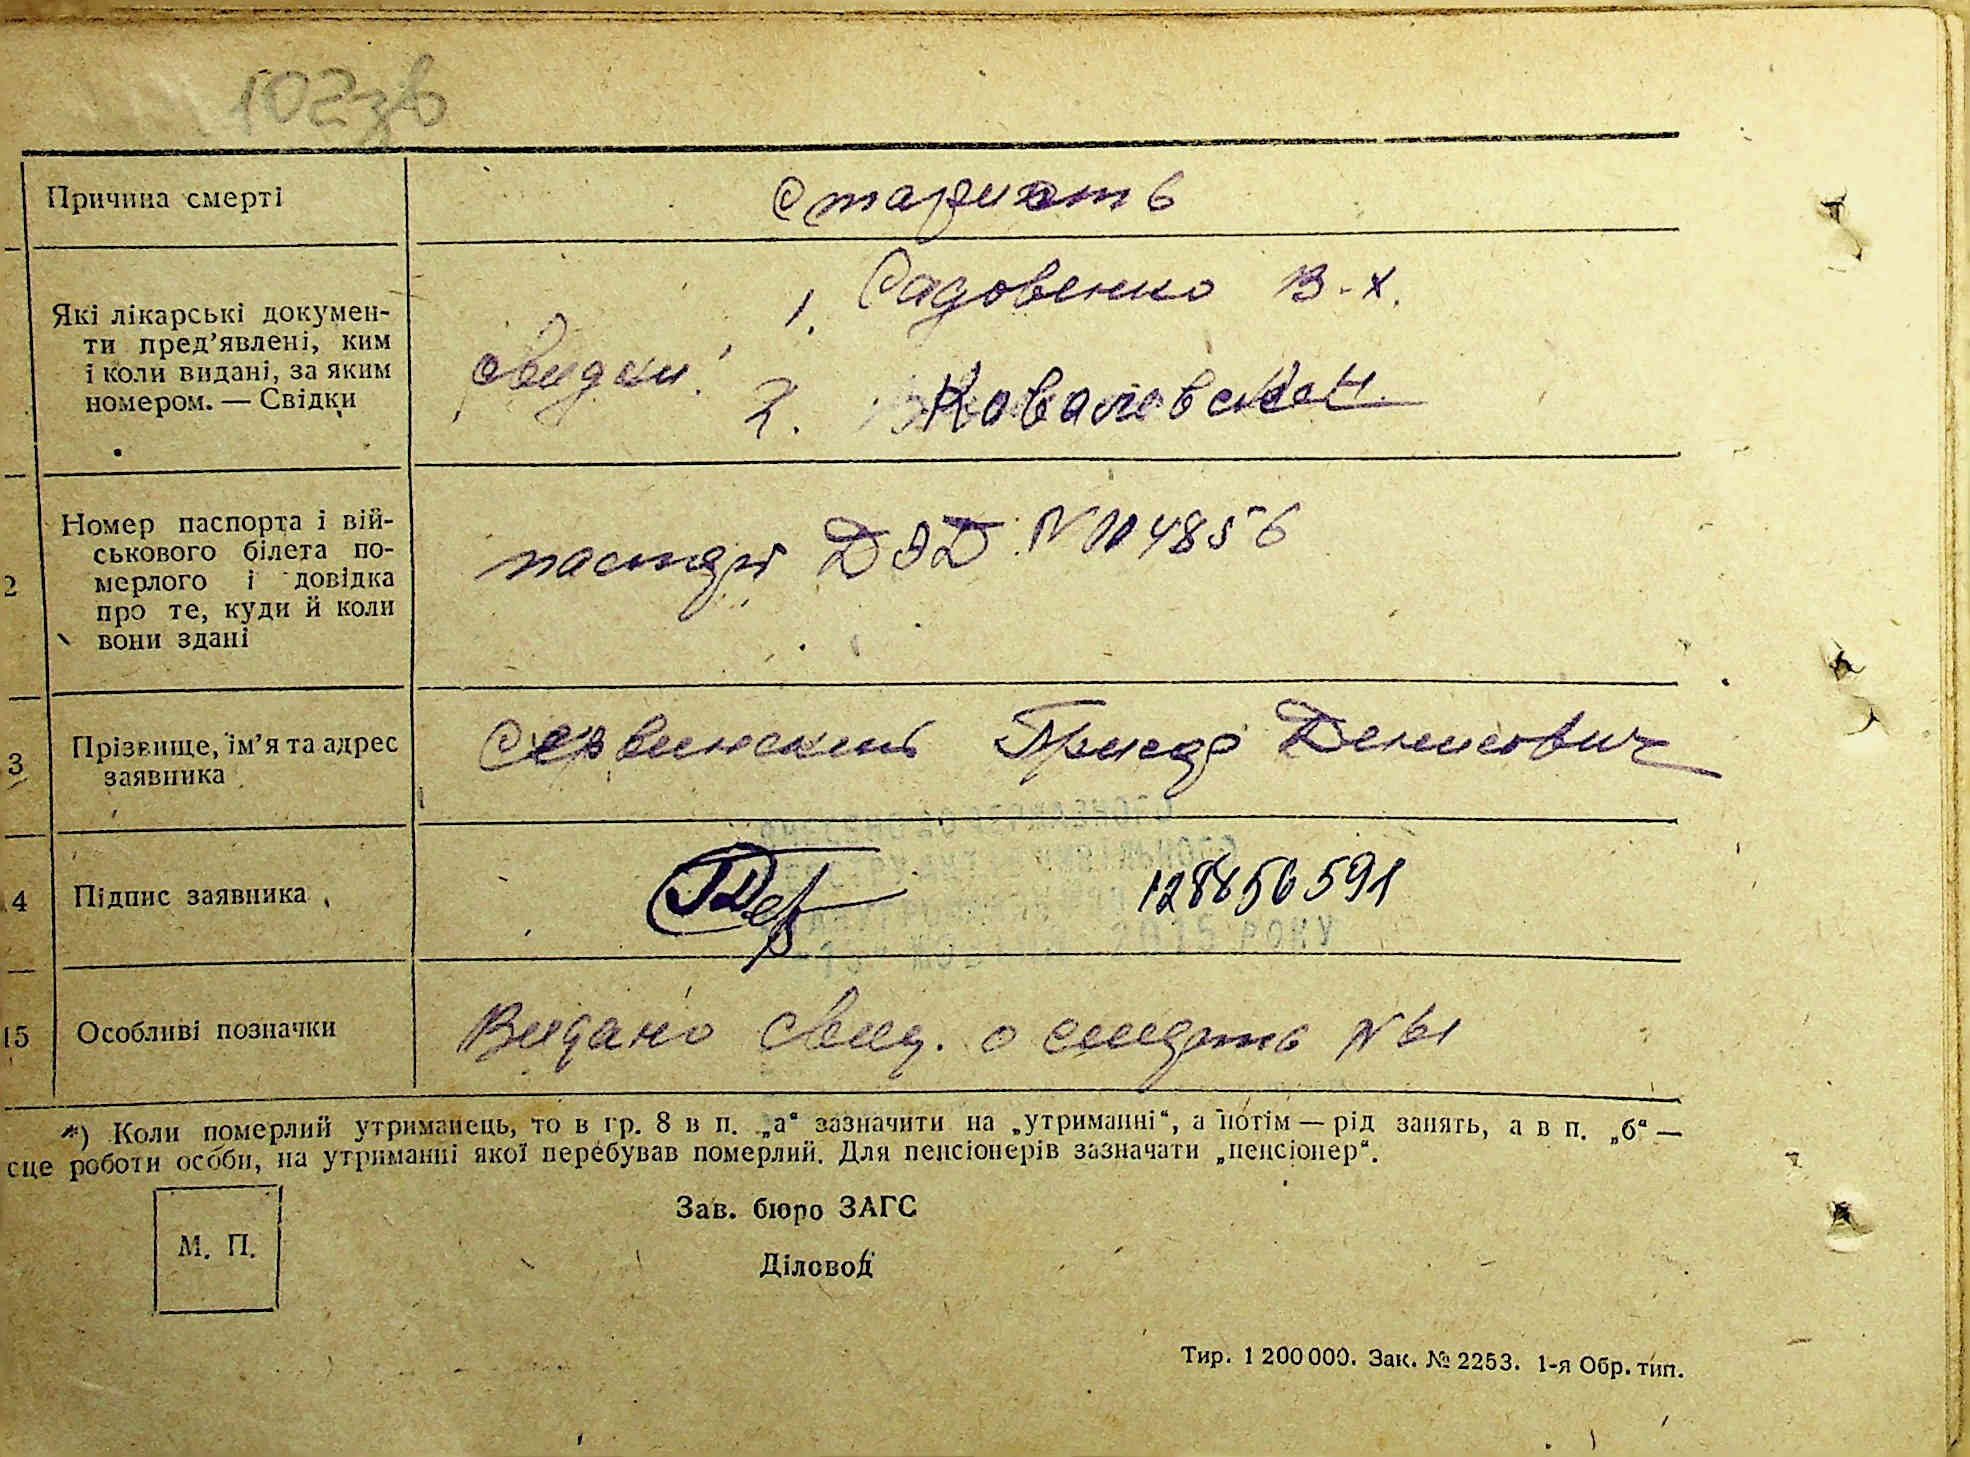 102зв
Причина смерті
Старисть
Які лікарські докумен-
ти пред'явлені, ким
і коли видані, за яким
номером. — Свідки
свидки: 1. Садовенко В. Х.
2. Ковалевская
Номер паспорта і вій-
ськового білета по-
мерлого і довідка
про те, куди й коли
вони здані
2
паспорт № 114856
3
Прізвище, ім'я та адрес
заявника
Сервинский Денисович
4
Підпис заявника
128856591
2015 РОКУ
15
Особливі позначки
Видано свид. о смерть № 61
*) Коли померлий утриманець, то в гр. 8 в п. „а“ зазначити на „утриманні“, а потім — рід занять, а в п. „б“ —
сце роботи особи, на утриманні якої перебував померлий. Для пенсіонерів зазначати „пенсіонер“.
М. П.
Зав. бюро ЗАГС
Діловод
Тир. 1 200 000. Зак. № 2253. 1-я Обр. тип.